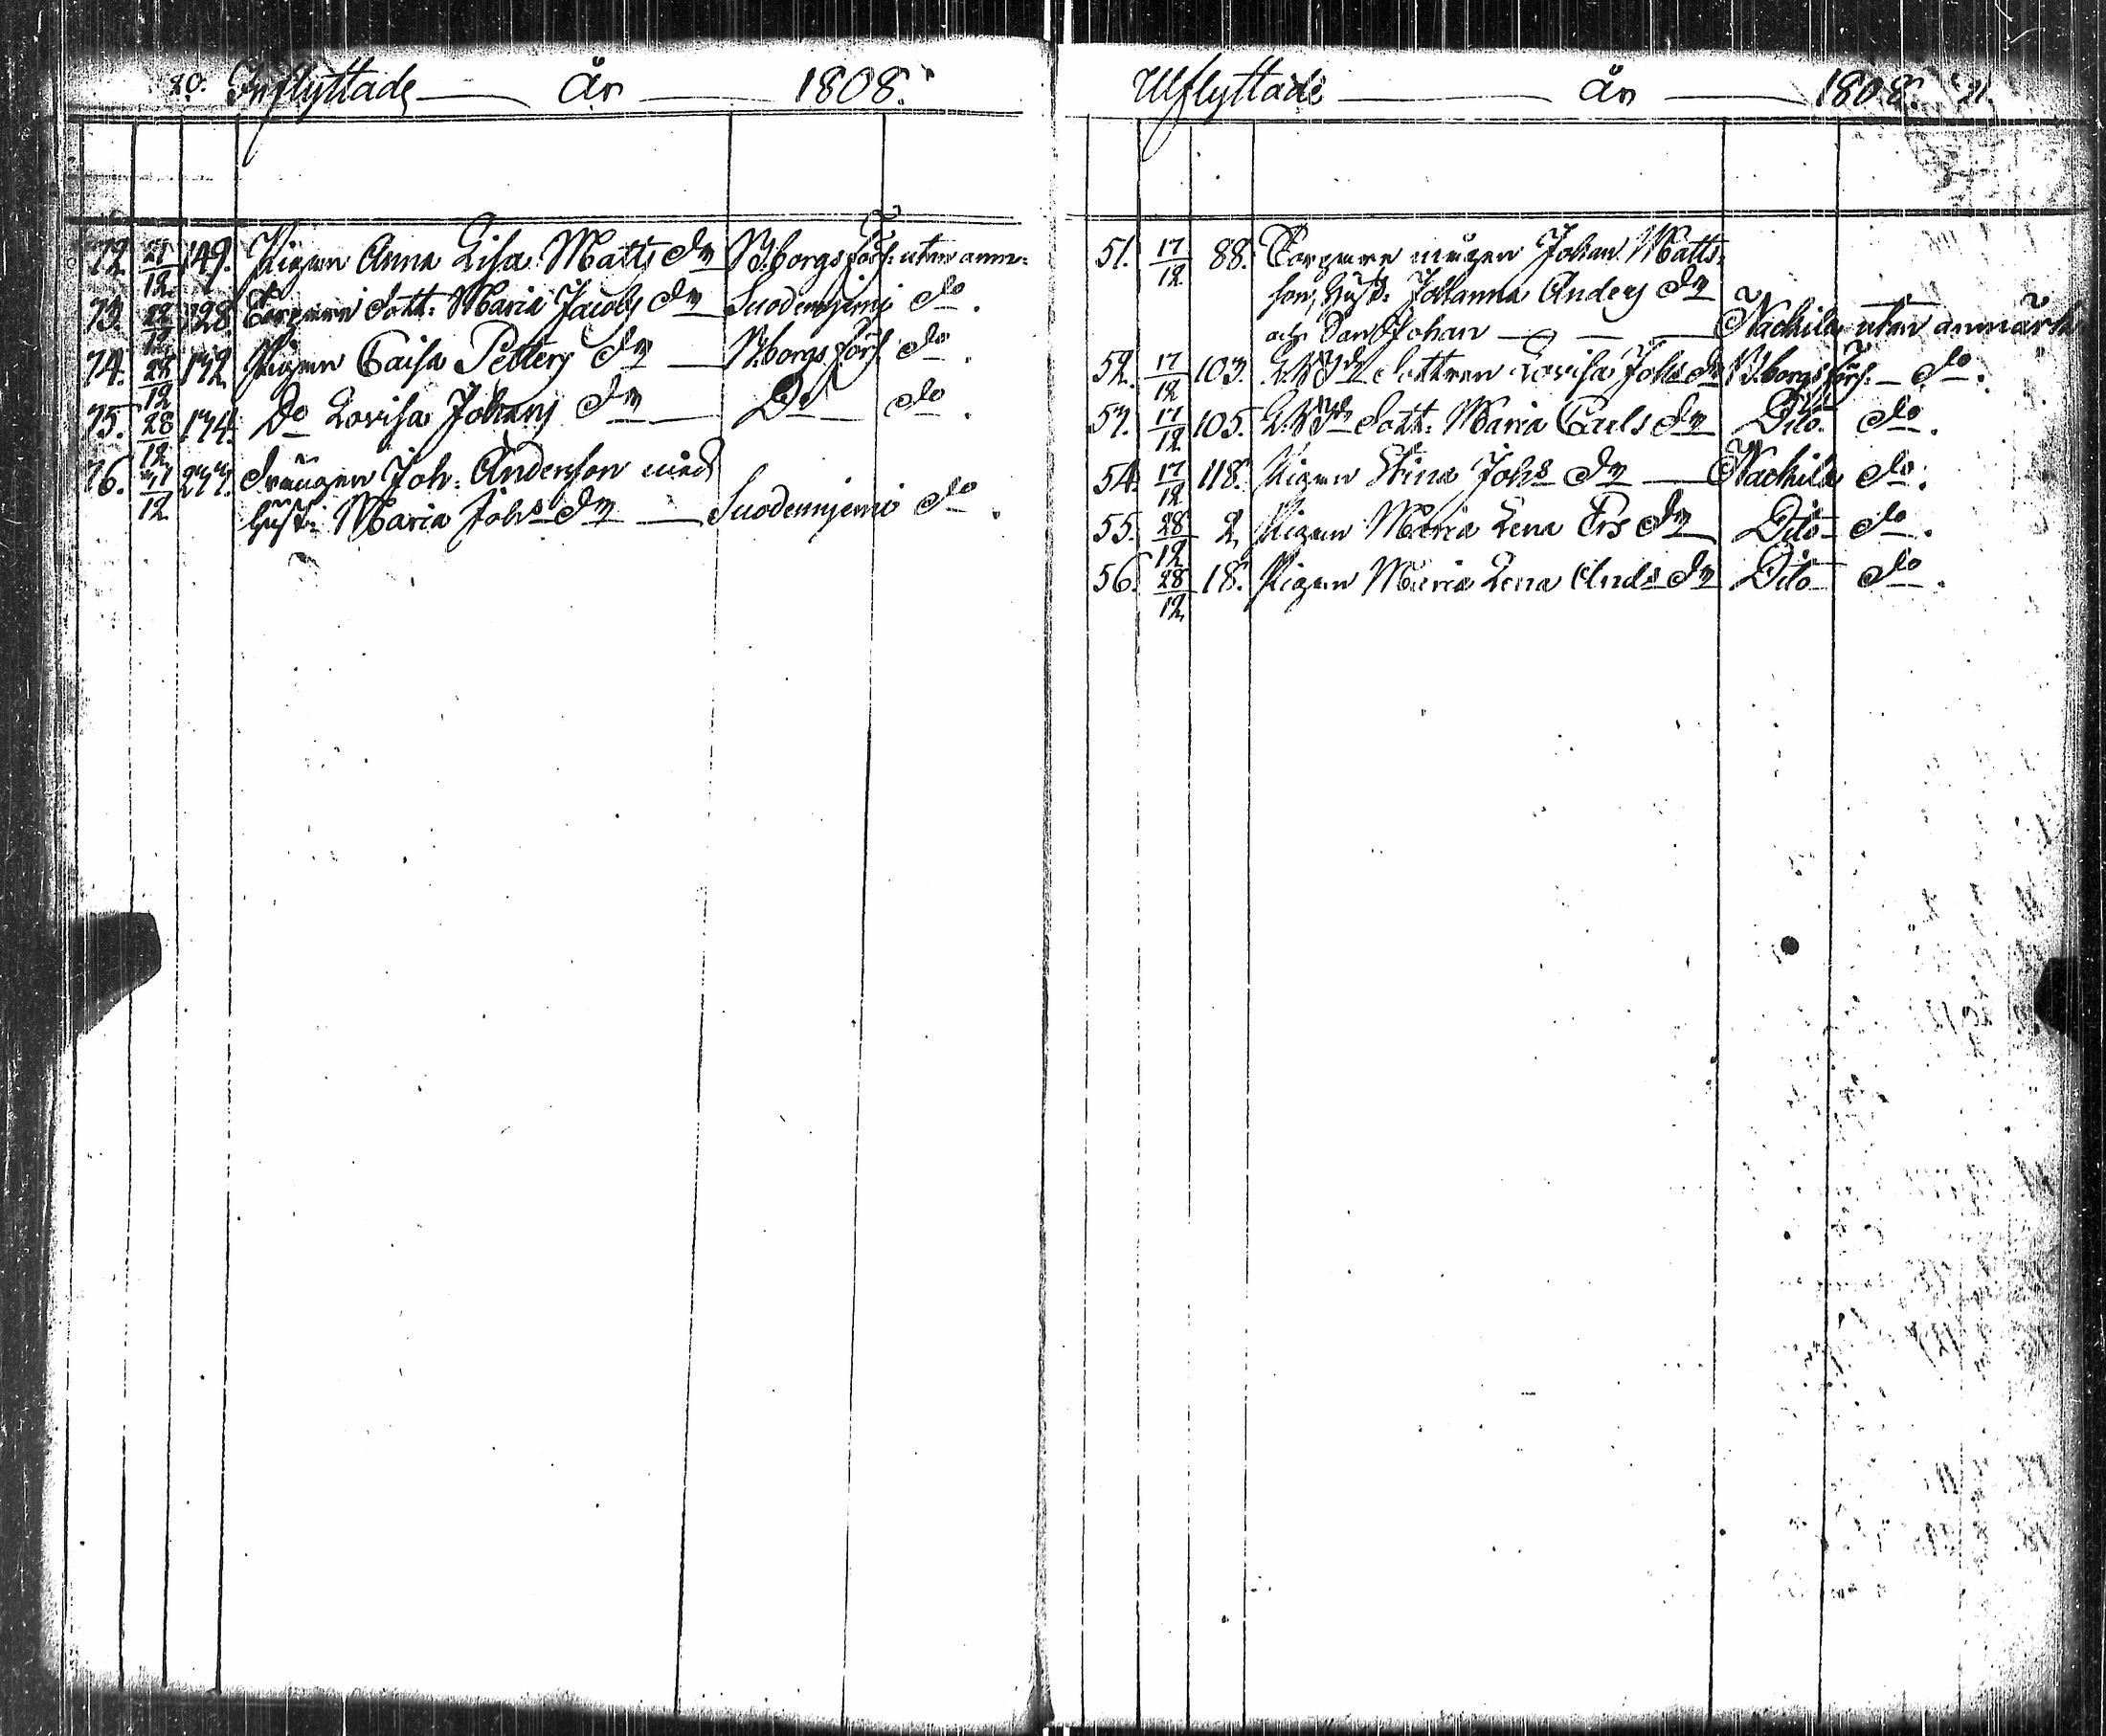 20. Inflyttade År 1808.
72. 21/12 149. Pigan Anna Lisa Matts dr B:borgs förs: utan anm:
73. 22/12 328. Torpare dott: Maria Jacobs dr Suodenjemi do.
74. 28/12 172. Pigan Caisa Petters dr B:borgs förs. do.
75. 28/12 174. Do Lovisa Johans dr Do do.
76. 31/12 277. Drängen Joh: Andersson med
hust: Maria Johs dr Suodenjemi do.
Utflyttade År 1808. 21.
51. 17/12 88. Torpare mågen Johan Matts-
son, hust: Johanna Anders dr
och Son Johan Nackila utan anmärk
52. 17/12 103. dottren Lovisa Johs dr B:borgs förs. do.
53. 17/12 105. dott: Maria Carls dr Dito do.
54. 17/12 118. Pigan Stina Johs dr Nackila do.
55. 28/12 2. Pigan Maria Lena Ers dr Dito do.
56. 28/12 18. Pigan Maria Lena Ands dr Dito do.